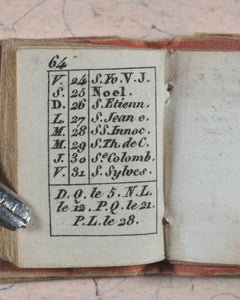 64
V. 24 S. Yv. V. J.
S. 25 Noel.
D. 26 S. Etienn.
L. 27 S. Jean e.
M. 28 SS. Innoc.
M. 29 S. Th. de C.
J. 30 Se. Colomb.
V. 31 S. Sylves.
D. Q. le 5. N. L.
le 12. P. Q. le 21.
P. L. le 28.